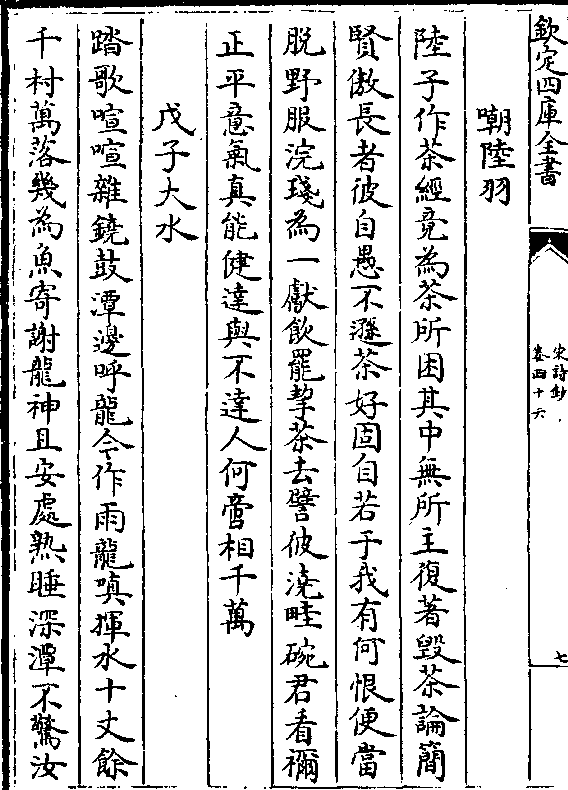 欽定四庫全書
宋詩鈔
卷四十六
七
嘲陸羽
陸子作茶經竟為茶所困其中無所主復著毀茶論簡
賢傲長者彼自愚不遜茶好固自若于我有何恨便當
脱野服浣琖為一獻飲罷挈茶去譬彼澆畦碗君看禰
正平意氣真能健達與不達人何啻相千萬
戊子大水
踏歌喧喧雜鐃鼓潭邊呼龍令作雨龍嗔揮水十丈餘
千村萬落幾為魚寄謝龍神且安處熟睡深潭不驚汝